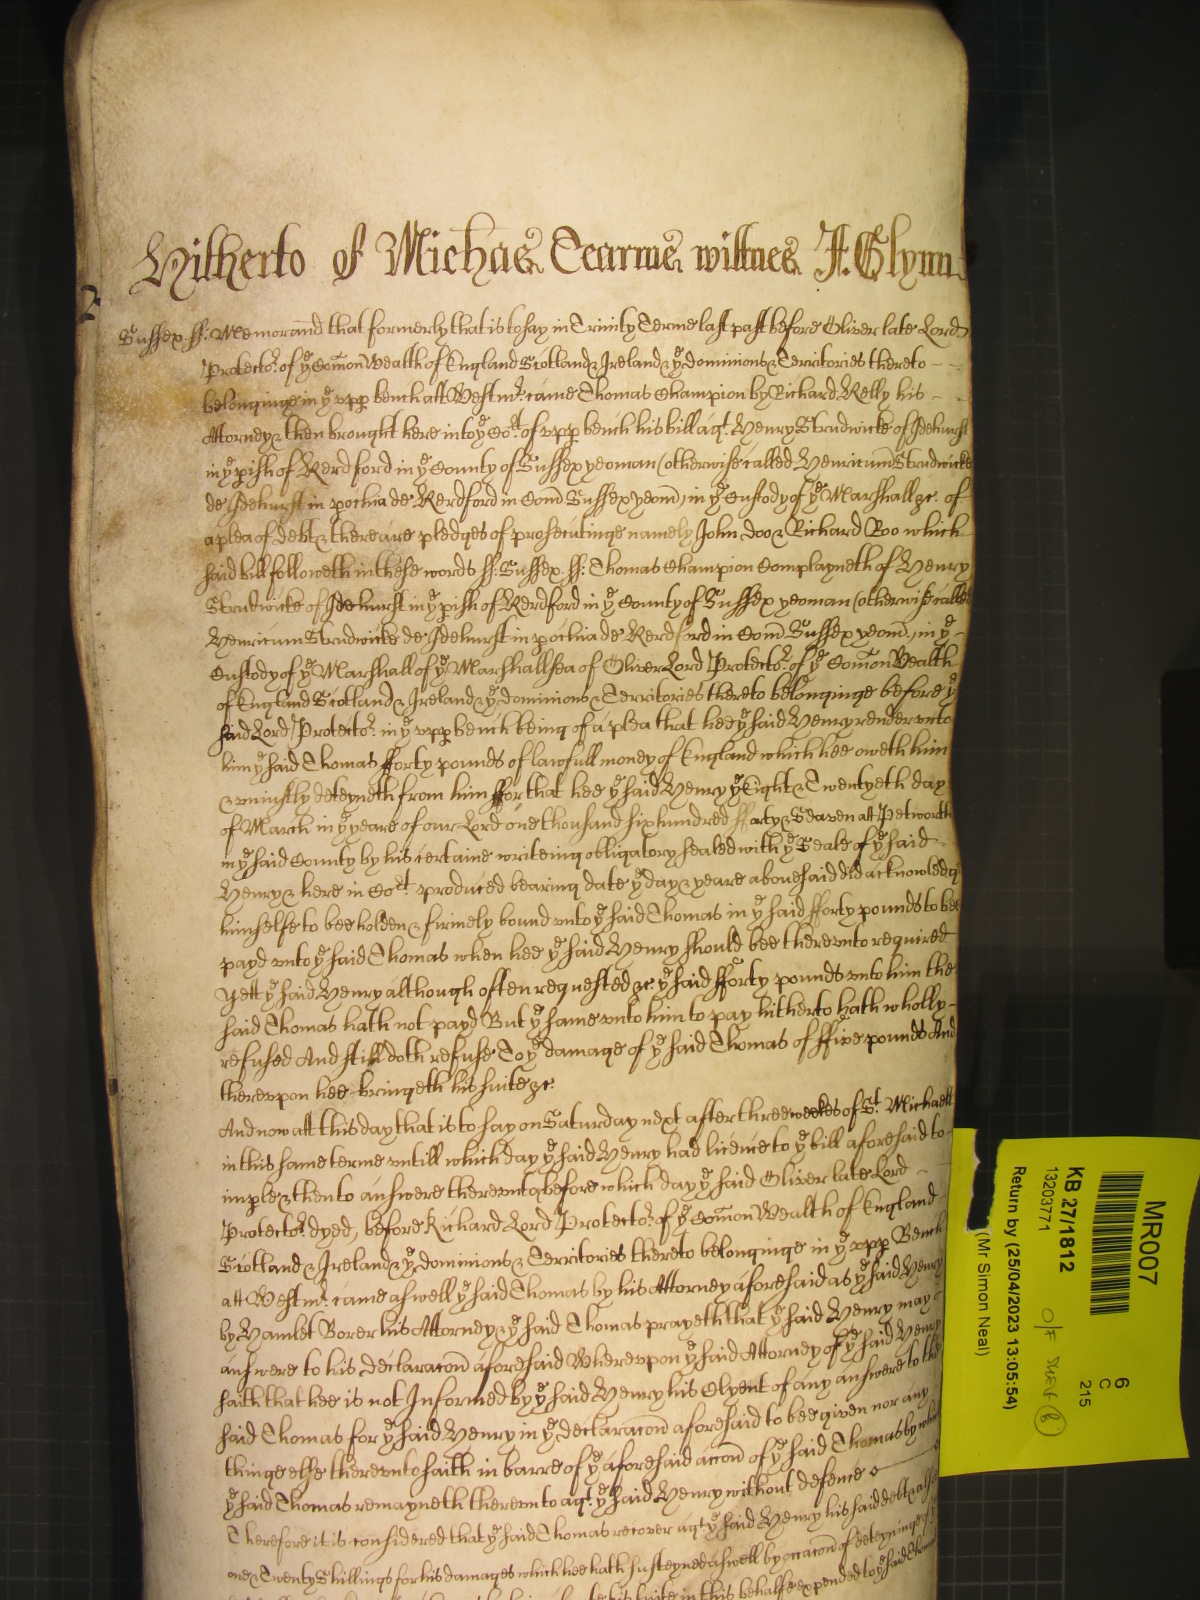 Hitherto of Michas Tearme wittnes J. Glynn
2
Sussex ss: Memorand that formerly that is to say in Trinity Terme last past before Oliver late Lord
Protector of ye Comon Wealth of England Scotland & Ireland & ye dominions & Territories thereto
belonginge in ye vpp bench att Westmr: came Thomas Champion by Richard Kelly his
Attorney & then brought here into ye Cort of vpp bench his bill agt: Henry Strudwicke of Idehurst
in ye pish of Kerdford in ye County of Sussex yeoman (otherwise called Henricum Strudwicke
de Idehurst in pochia de Kerdford in Com Sussex yeom) in ye Custody of ye Marshall &c. of
a plea of debt & there are pledges of prosecutinge namely John doo & Richard Roo which
said bill followeth in these words ss: Sussex ss: Thomas Champion Complayneth of Henry
Strudwicke of Idehurst in ye pish of Kerdford in ye County of Sussex yeoman (otherwise called
Henricum Strudwicke de Idehurst in pochia de Kerdford in Com Sussex yeom) in ye
Custody of ye Marshall of ye Marshallsea of Oliver Lord Protector: of ye Comon Wealth
of England Scotland & Ireland & ye dominions & Territories thereto belonginge before ye
said Lord Protector: in ye vpp bench being of a plea that hee ye said Henry render vnto
him ye said Thomas fforty pounds of lawfull money of England which hee oweth him
& vniustly deteyneth from him ffor that hee ye said Henry ye Eight & Twentyeth day
of March in ye yeare of our Lord one thousand six hundred fforty & Seaven att Petworth
in ye said County by his certaine writeing obligatory sealed with ye Seale of ye said
Henry & here in Cort produced bearing date ye day & yeare abouesaid did acknowledg
himselfe to bee holden & firmely bound vnto ye said Thomas in ye said fforty pounds to bee
payd vnto ye said Thomas when hee ye said Henry should bee therevnto required
Yett ye said Henry although often requested &c ye said fforty pounds vnto him the
said Thomas hath not payd But ye same vnto him to pay hitherto hath wholly
refused And still doth refuse To ye damage of ye said Thomas of ffive pounds And
therevpon hee bringeth his suite &c
And now att this day that is to say on Saturday next after three weekes of St Michaell
in this same terme vntill which day ye said Henry had licence to ye bill aforesaid to
imple & then to answere therevnto & before which day ye said Oliver late Lord
Protector: dyed, before Richard Lord Protector: of ye Comon Wealth of England
Scotland & Ireland & ye dominions & Territories thereto belonginge in ye vpp Bench
att Westmr: came aswell ye said Thomas by his Attorney aforesaid as ye said Henry
by Hamlet Borer his Attorney & ye said Thomas prayeth that ye said Henry may
answere to his declaracon aforesaid Wherevpon ye said Attorney of ye said Henry
saith that hee is not Informed by ye said Henry his Clyent of any answere to the
said Thomas for ye said Henry in ye declaracon aforesaid to bee given nor any
thinge else therevnto saith in barre of ye aforesaid accon of ye said Thomas by which
ye said Thomas remayneth therevnto agt: ye said Henry without defence
Therefore it is considered that ye said Thomas recover agt ye said Henry his said debt
one & Twenty Shillings for his damages which hee hath susteyned aswell by occacon of deteyninge
in this behalfe expended to ye said
MR007
6
C
215
KB 27/1812
13203771
Return by (25/04/2023 13:05:54)
(Mr Simon Neal)